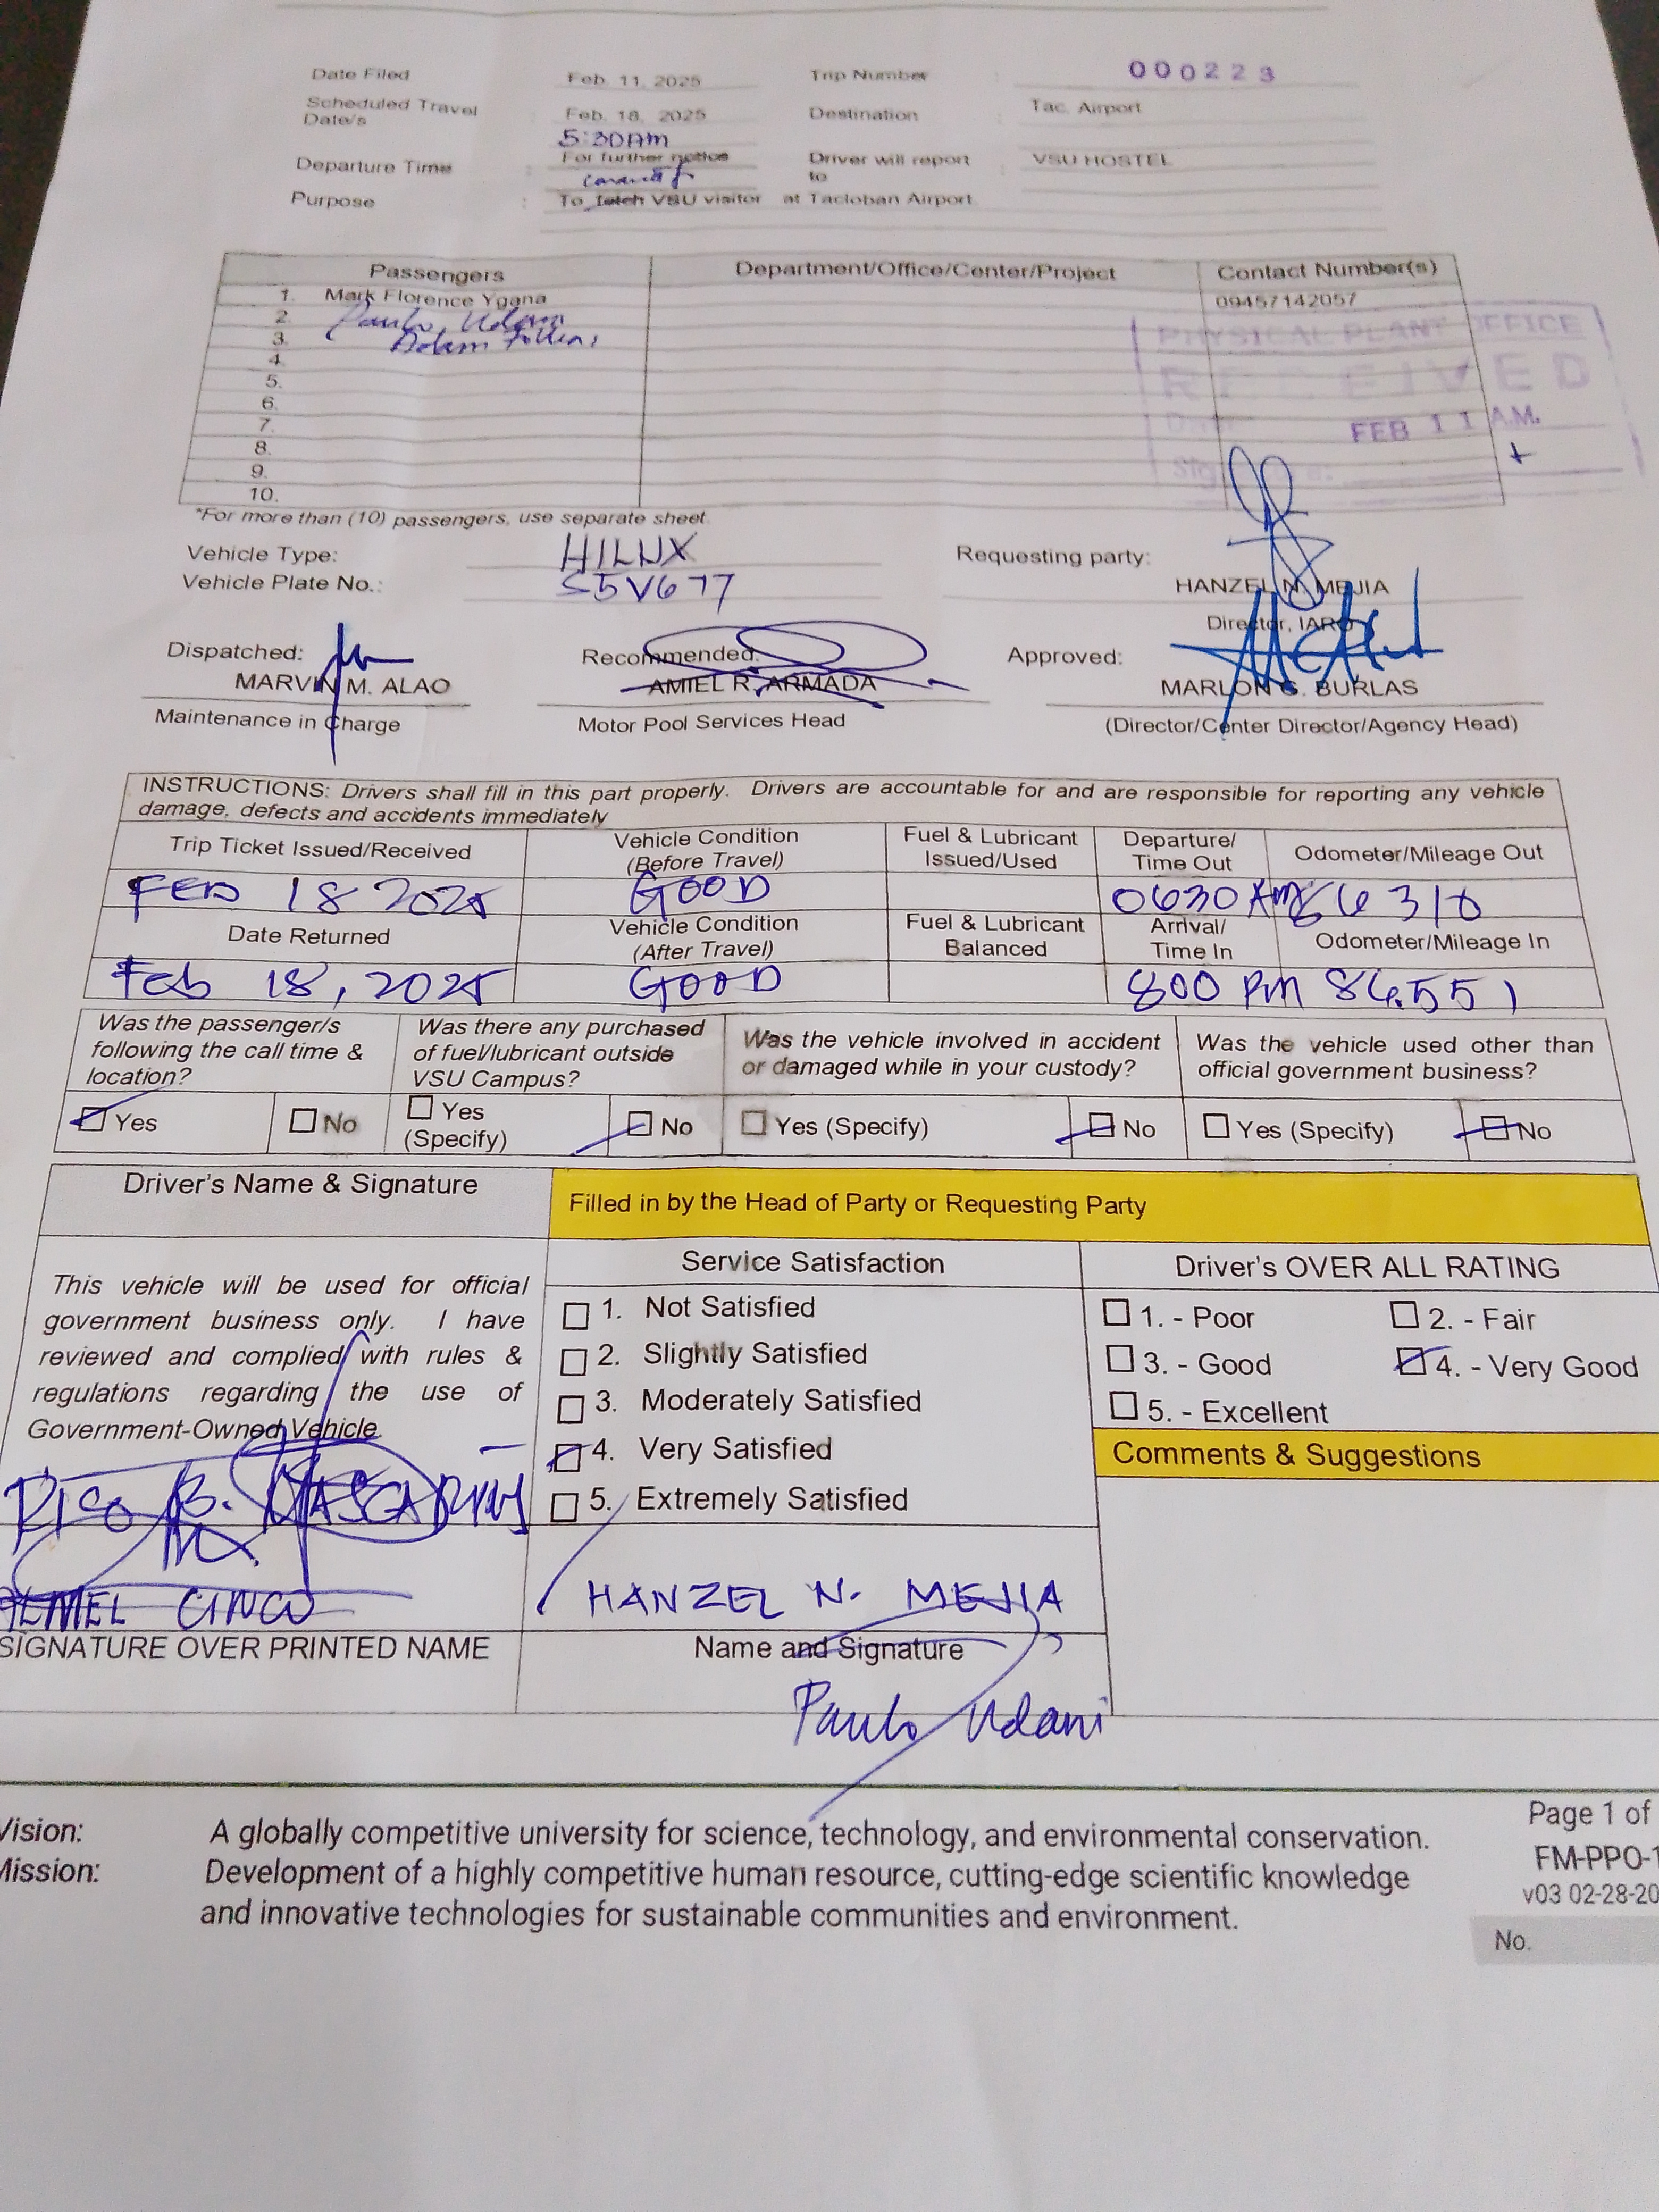 Date Filed : Feb. 11, 2025 Trip Number : 000223
Scheduled Travel Date/s : Feb. 18, 2025 Destination : Tac. Airport
5:30AM
Departure Time : For further notice Driver will report to : VSU HOSTEL
Purpose : To fetch VSU visitor at Tacloban Airport.
Passengers Department/Office/Center/Project Contact Number(s)
1. Mark Florence Ygana 09457142057
2. Paulo Udani
3. Adam
4.
5.
6.
7.
8.
9.
10.
PHYSICAL PLANT OFFICE
RECEIVED
Date: FEB 11 A.M.
*For more than (10) passengers, use separate sheet.
Vehicle Type: HILUX Requesting party:
Vehicle Plate No.: S5V677 HANZEL N. MEJIA
Director, IARO
Dispatched: Recommended: Approved:
MARVIN M. ALAO AMIEL R. ARMADA MARLON G. BURLAS
Maintenance in Charge Motor Pool Services Head (Director/Center Director/Agency Head)
INSTRUCTIONS: Drivers shall fill in this part properly. Drivers are accountable for and are responsible for reporting any vehicle
damage, defects and accidents immediately
Trip Ticket Issued/Received Vehicle Condition (Before Travel) Fuel & Lubricant Issued/Used Departure/ Time Out Odometer/Mileage Out
FEB 18 2025 GOOD 0630 AM 86310
Date Returned Vehicle Condition (After Travel) Fuel & Lubricant Balanced Arrival/ Time In Odometer/Mileage In
Feb 18, 2025 GOOD 800 PM 86551
Was the passenger/s following the call time & location? Was there any purchased of fuel/lubricant outside VSU Campus? Was the vehicle involved in accident or damaged while in your custody? Was the vehicle used other than official government business?
Yes No Yes (Specify) No Yes (Specify) No Yes (Specify) No
Driver's Name & Signature Filled in by the Head of Party or Requesting Party
Service Satisfaction Driver's OVER ALL RATING
This vehicle will be used for official
government business only. I have
reviewed and complied with rules &
regulations regarding the use of
Government-Owned Vehicle.
1. Not Satisfied
2. Slightly Satisfied
3. Moderately Satisfied
4. Very Satisfied
5. Extremely Satisfied
1. - Poor 2. - Fair
3. - Good 4. - Very Good
5. - Excellent
Comments & Suggestions
RICO B. MASCARIÑAS
CINCO
HANZEL N. MEJIA
SIGNATURE OVER PRINTED NAME Name and Signature
Paulo Udani
Vision: A globally competitive university for science, technology, and environmental conservation.
Mission: Development of a highly competitive human resource, cutting-edge scientific knowledge
and innovative technologies for sustainable communities and environment.
Page 1 of
FM-PPO-1
v03 02-28-20
No.